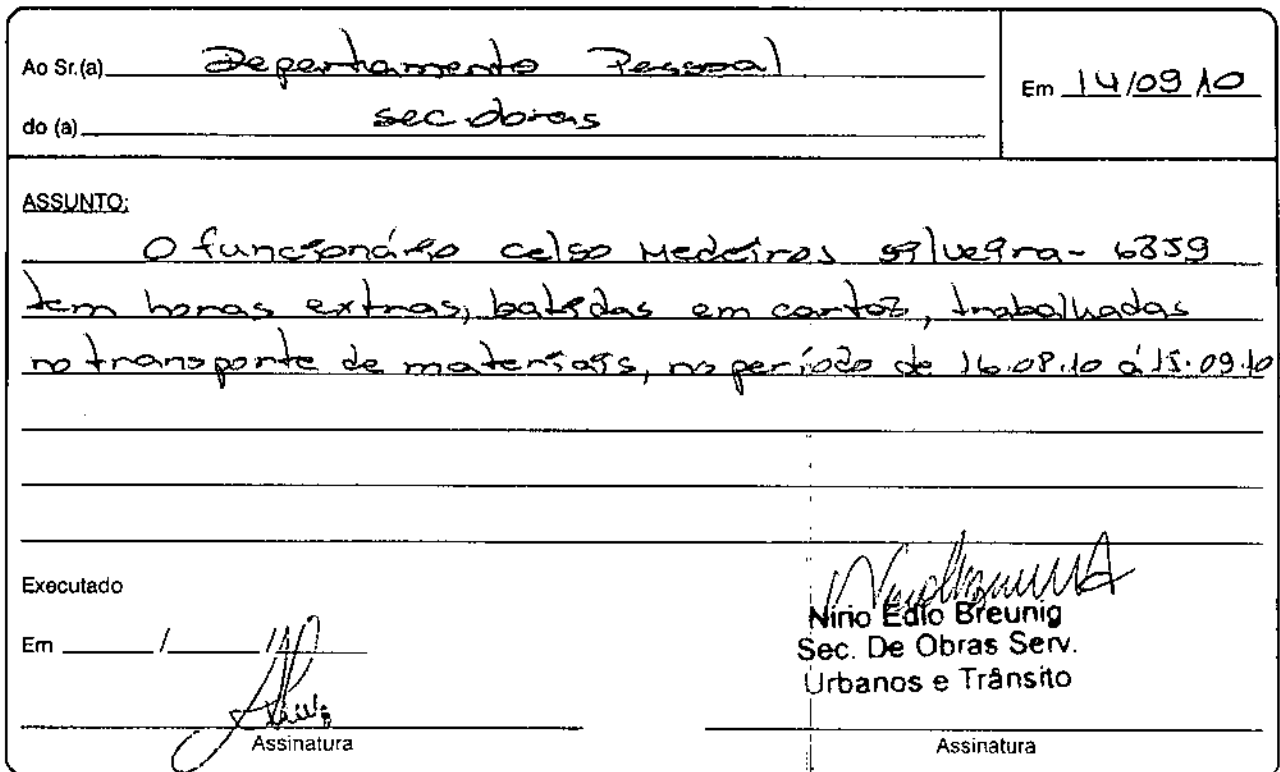 Ao Sr.(a) Departamento Pessoal
Em 14/09/10
do (a) sec. obras
ASSUNTO:
O funcionário Celso Medeiros Silveira - 6359
tem horas extras, batidas em cartão, trabalhadas
no transporte de materiais, no período de 16.08.10 á 15.09.10
Executado
Em ____/____/____
Nirio Edio Breunig
Sec. De Obras Serv.
Urbanos e Trânsito
Assinatura
Assinatura